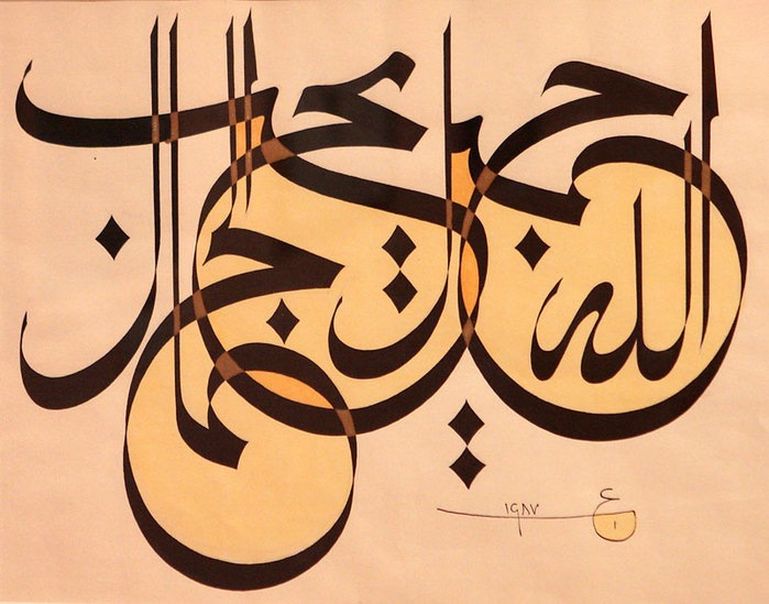 الله جميل يحب الجمال
١٩٨٧
ع
١